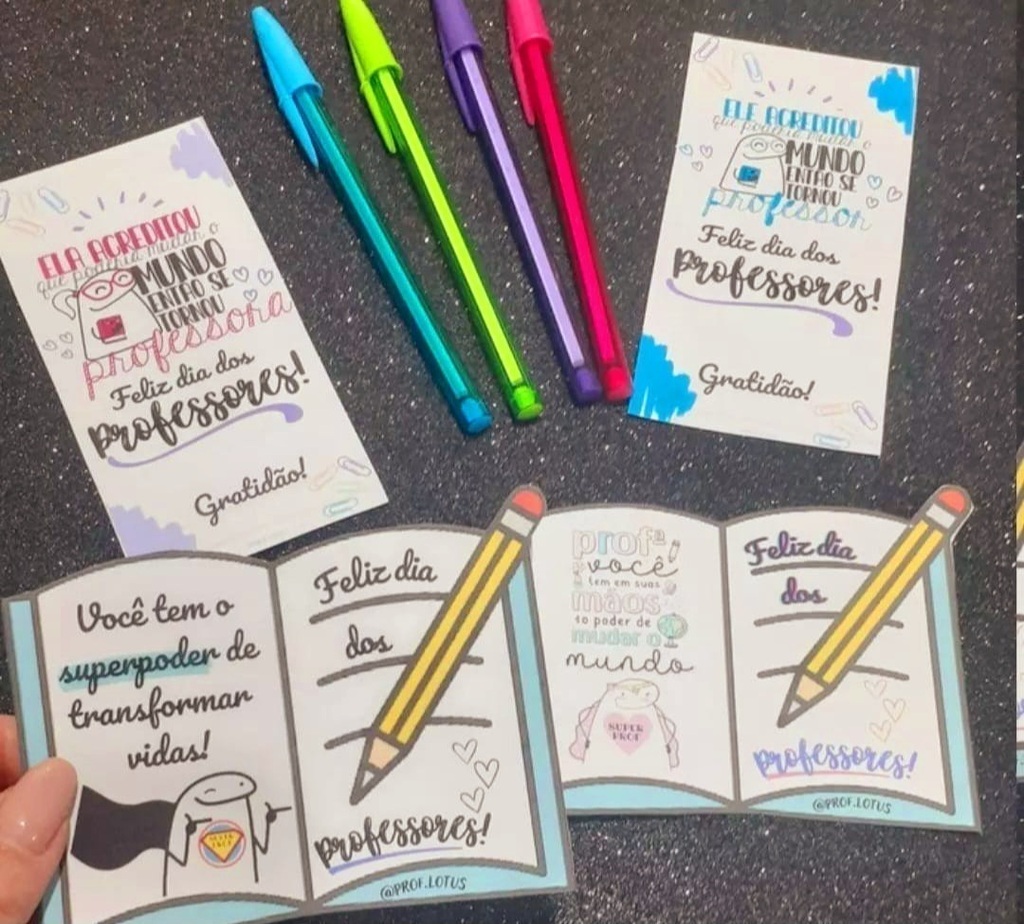 ELA ACREDITOU
que poderia mudar o
MUNDO
ENTÃO SE
TORNOU
professora
Feliz dia dos
professores!
Gratidão!
ELE ACREDITOU
que poderia mudar o
MUNDO
ENTÃO SE
TORNOU
professor
Feliz dia dos
professores!
Gratidão!
Você tem o
superpoder de
transformar
vidas!
Feliz dia
dos
professores!
@PROF.LOTUS
profª
você
tem em suas
mãos
o poder de
mudar o
mundo
SUPER
PROF
Feliz dia
dos
professores!
@PROF.LOTUS